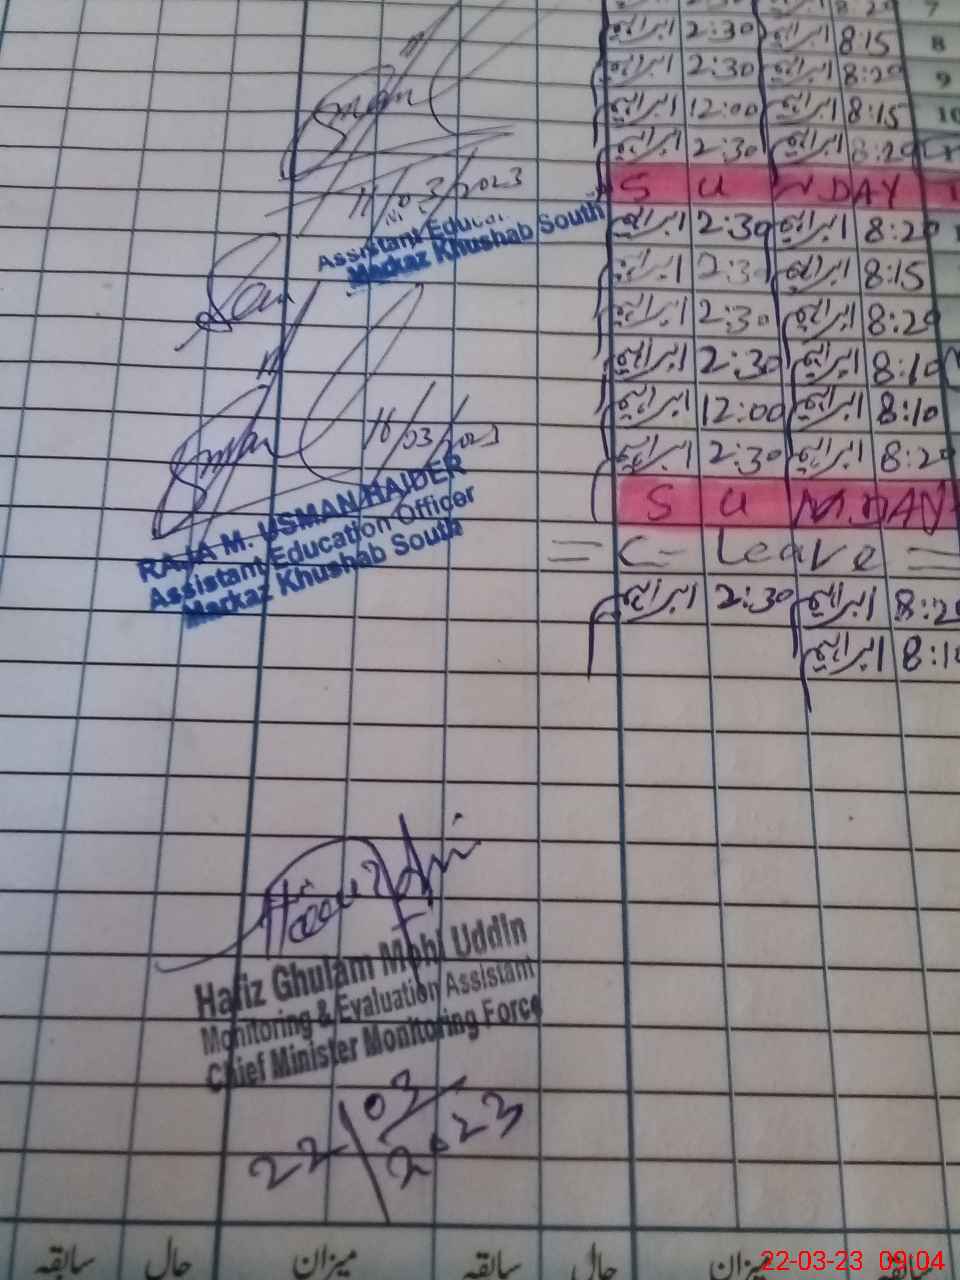 ابراہیم 2:30 ابراہیم 8:15 8
ابراہیم 2:30 ابراہیم 8:20 9
ابراہیم 12:00 ابراہیم 8:15 10
ابراہیم 2:30 ابراہیم 8:20
S U N DAY
ابراہیم 2:30 ابراہیم 8:20
ابراہیم 2:30 ابراہیم 8:15
ابراہیم 2:30 ابراہیم 8:20
ابراہیم 2:30 ابراہیم 8:10
ابراہیم 12:00 ابراہیم 8:10
ابراہیم 2:30 ابراہیم 8:20
S U N DAY
= C - Leave =
ابراہیم 2:30 ابراہیم 8:20
ابراہیم 8:10
11/03/2023
Assistant
Markaz Khushab South
16/03/2023
RAJA M. USMAN HAIDER
Assistant Education Officer
Markaz Khushab South
Hafiz Ghulam Mohi Uddin
Monitoring & Evaluation Assistant
Chief Minister Monitoring Force
22/03/2023
میزان حال سابقہ میزان حال سابقہ
22-03-23 09:04